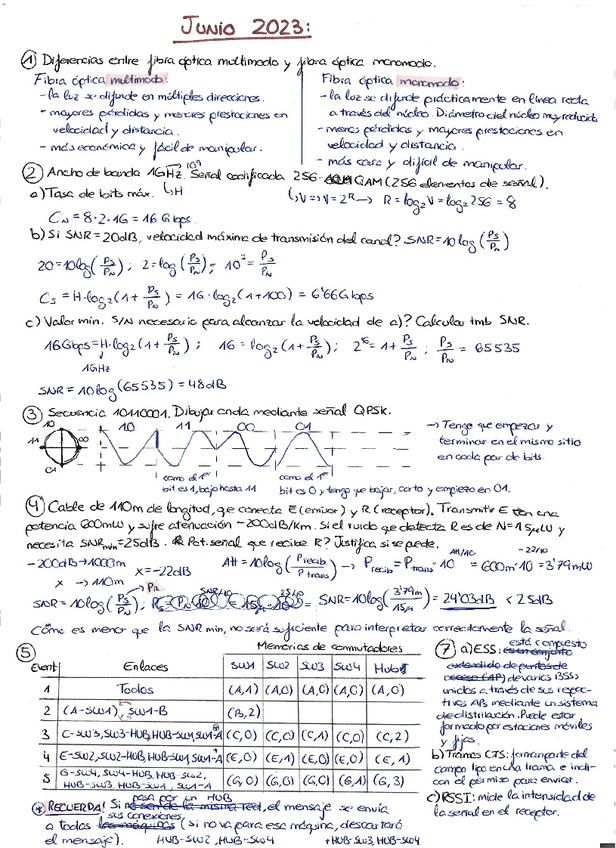 JUNIO 2023:
① Diferencias entre fibra óptica multimodo y fibra óptica monomodo.
Fibra óptica multimodo:
- la luz se difunde en múltiples direcciones.
- mayores pérdidas y menores prestaciones en
velocidad y distancia.
- más económica y fácil de manipular.
Fibra óptica monomodo:
- la luz se difunde prácticamente en línea recta
a través del núcleo. Diámetro del núcleo muy reducido
- menos pérdidas y mayores prestaciones en
velocidad y distancia.
- más cara y difícil de manipular.
② Ancho de banda 1GHz. Señal codificada 256-QAM (256 elementos de señal).
10⁹
↳H
a) Tasa de bits máx.
↳V => V=2ᴿ → R = log₂V = log₂256 = 8
C_N = 8·2·1G = 16 Gbps.
b) Si SNR = 20dB, velocidad máxima de transmisión del canal? SNR = 10log(Ps/Pn)
20 = 10log(Ps/PN); 2 = log(Ps/PN); 10² = Ps/PN
Cs = H·log₂(1 + Ps/PN) = 1G·log₂(1+100) = 6'66Gbps
c) Valor min. S/N necesario para alcanzar la velocidad de a)? Calcular tmb SNR.
16Gbps = H·log₂(1 + Ps/PN); 16 = log₂(1 + Ps/PN); 2¹⁶ = 1 + Ps/PN; Ps/PN = 65535
1GHz
SNR = 10log(65535) = 48dB
③ Secuencia 10110001. Dibujar onda mediante señal QPSK.
10
11
00
01
10 11 00 01
como el 1er
bit es 1, bajo hasta 11
como el 1er
bit es 0 y tengo que bajar, corto y empiezo en 01.
→ Tengo que empezar y
terminar en el mismo sitio
en cada par de bits.
④ Cable de 110m de longitud, que conecta E (emisor) y R (receptor). Transmitir E con una
potencia 600mW y sufre atenuación -200dB/km. Si el ruido que detecta R es de N=15μW y
necesita SNRmin=25dB. Pot. señal que recibe R? Justifica si se puede.
-200dB → 1000m
x → 110m
x = -22dB
Att = 10log(Precib/Ptrans) → Precib = Ptrans·10^(Att/10) = 600m·10^(-22/10) = 3'79mW
PR
SNR = 10log(Ps/PN);
SNR = 10log(3'79m/15μ) = 24'03dB < 25dB
Cómo es menor que la SNR min, no será suficiente para interpretar correctamente la señal.
⑤ Memorias de conmutadores
Event Enlaces SW1 SW2 SW3 SW4 Hub
1 Todos (A,1) (A,0) (A,0) (A,0) (A,0)
2 (A-SW1), SW1-B (B,2)
3 C-SW3, SW3-HUB, HUB-SW1, SW1-A (C,0) (C,0) (C,1) (C,0) (C,2)
4 E-SW2, SW2-HUB, HUB-SW1, SW1-A (E,0) (E,1) (E,0) (E,0) (E,1)
5 G-SW4, SW4-HUB, HUB-SW2,
HUB-SW3, HUB-SW1, SW1-A (G,0) (G,0) (G,0) (G,1) (G,3)
* RECUERDA! Si pasa por un HUB no son de la misma red, el mensaje se envía
a todas sus conexiones las máquinas (si no va para esa máquina, descartará
el mensaje). HUB-SW2, HUB-SW4 +HUB-SW3, HUB-SW4
⑦ a) ESS: está compuesto
de varios BSSs
unidos a través de sus respec-
tivos AP, mediante un sistema
de distribución. Puede estar
formado por estaciones móviles
y fijas.
b) Tramas CTS: forman parte del
campo tipo en la trama e indi-
can el permiso para enviar.
c) RSSI: mide la intensidad de
la señal en el receptor.